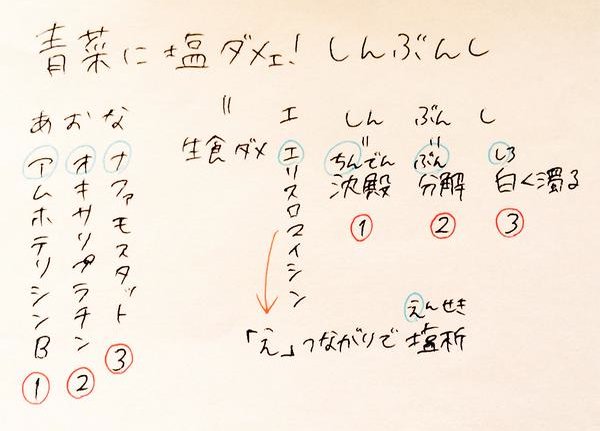 青菜に塩ダメェ! しんぶんし
あおな
アムホテリシンB ①
オキサリプラチン ②
ナファモスタット ③
=
生食ダメ
エ
エリスロマイシン
「え」つながりで
えんせき
塩析
しん ぶん し
= =
ちんでん ぶん しろ
沈殿 分解 白く濁る
① ② ③